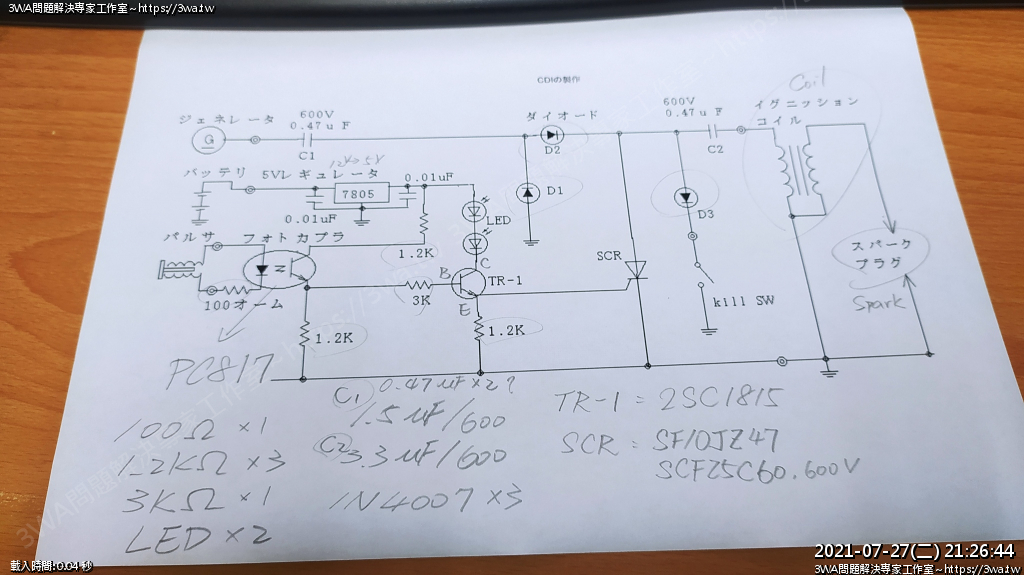 3WA問題解決專家工作室~https://3wa.tw
CDIの制作
Coil
ジェネレータ
600V
0.47u F
ダイオード
600V
0.47u F
イグニッション
コイル
G
C1
D2
C2
12V→5V
バッテリ
5Vレギュレータ
0.01uF
7805
D1
D3
LED
0.01uF
パルサ
フォトカプラ
1.2K
C
SCR
スパーク
プラグ
B
TR-1
100オーム
3K
E
kill SW
Spark
1.2K
1.2K
PC817
C1 0.47uF×2?
1.5uF/600
TR-1 = 2SC1815
100Ω ×1
C2 3.3uF/600
SCR = SF10JZ47
1.2KΩ ×3
SCF25C60.600V
3KΩ ×1
1N4007 ×3
LED ×2
2021-07-27(二) 21:26:44
載入時間:0.04 秒
3WA問題解決專家工作室~https://3wa.tw